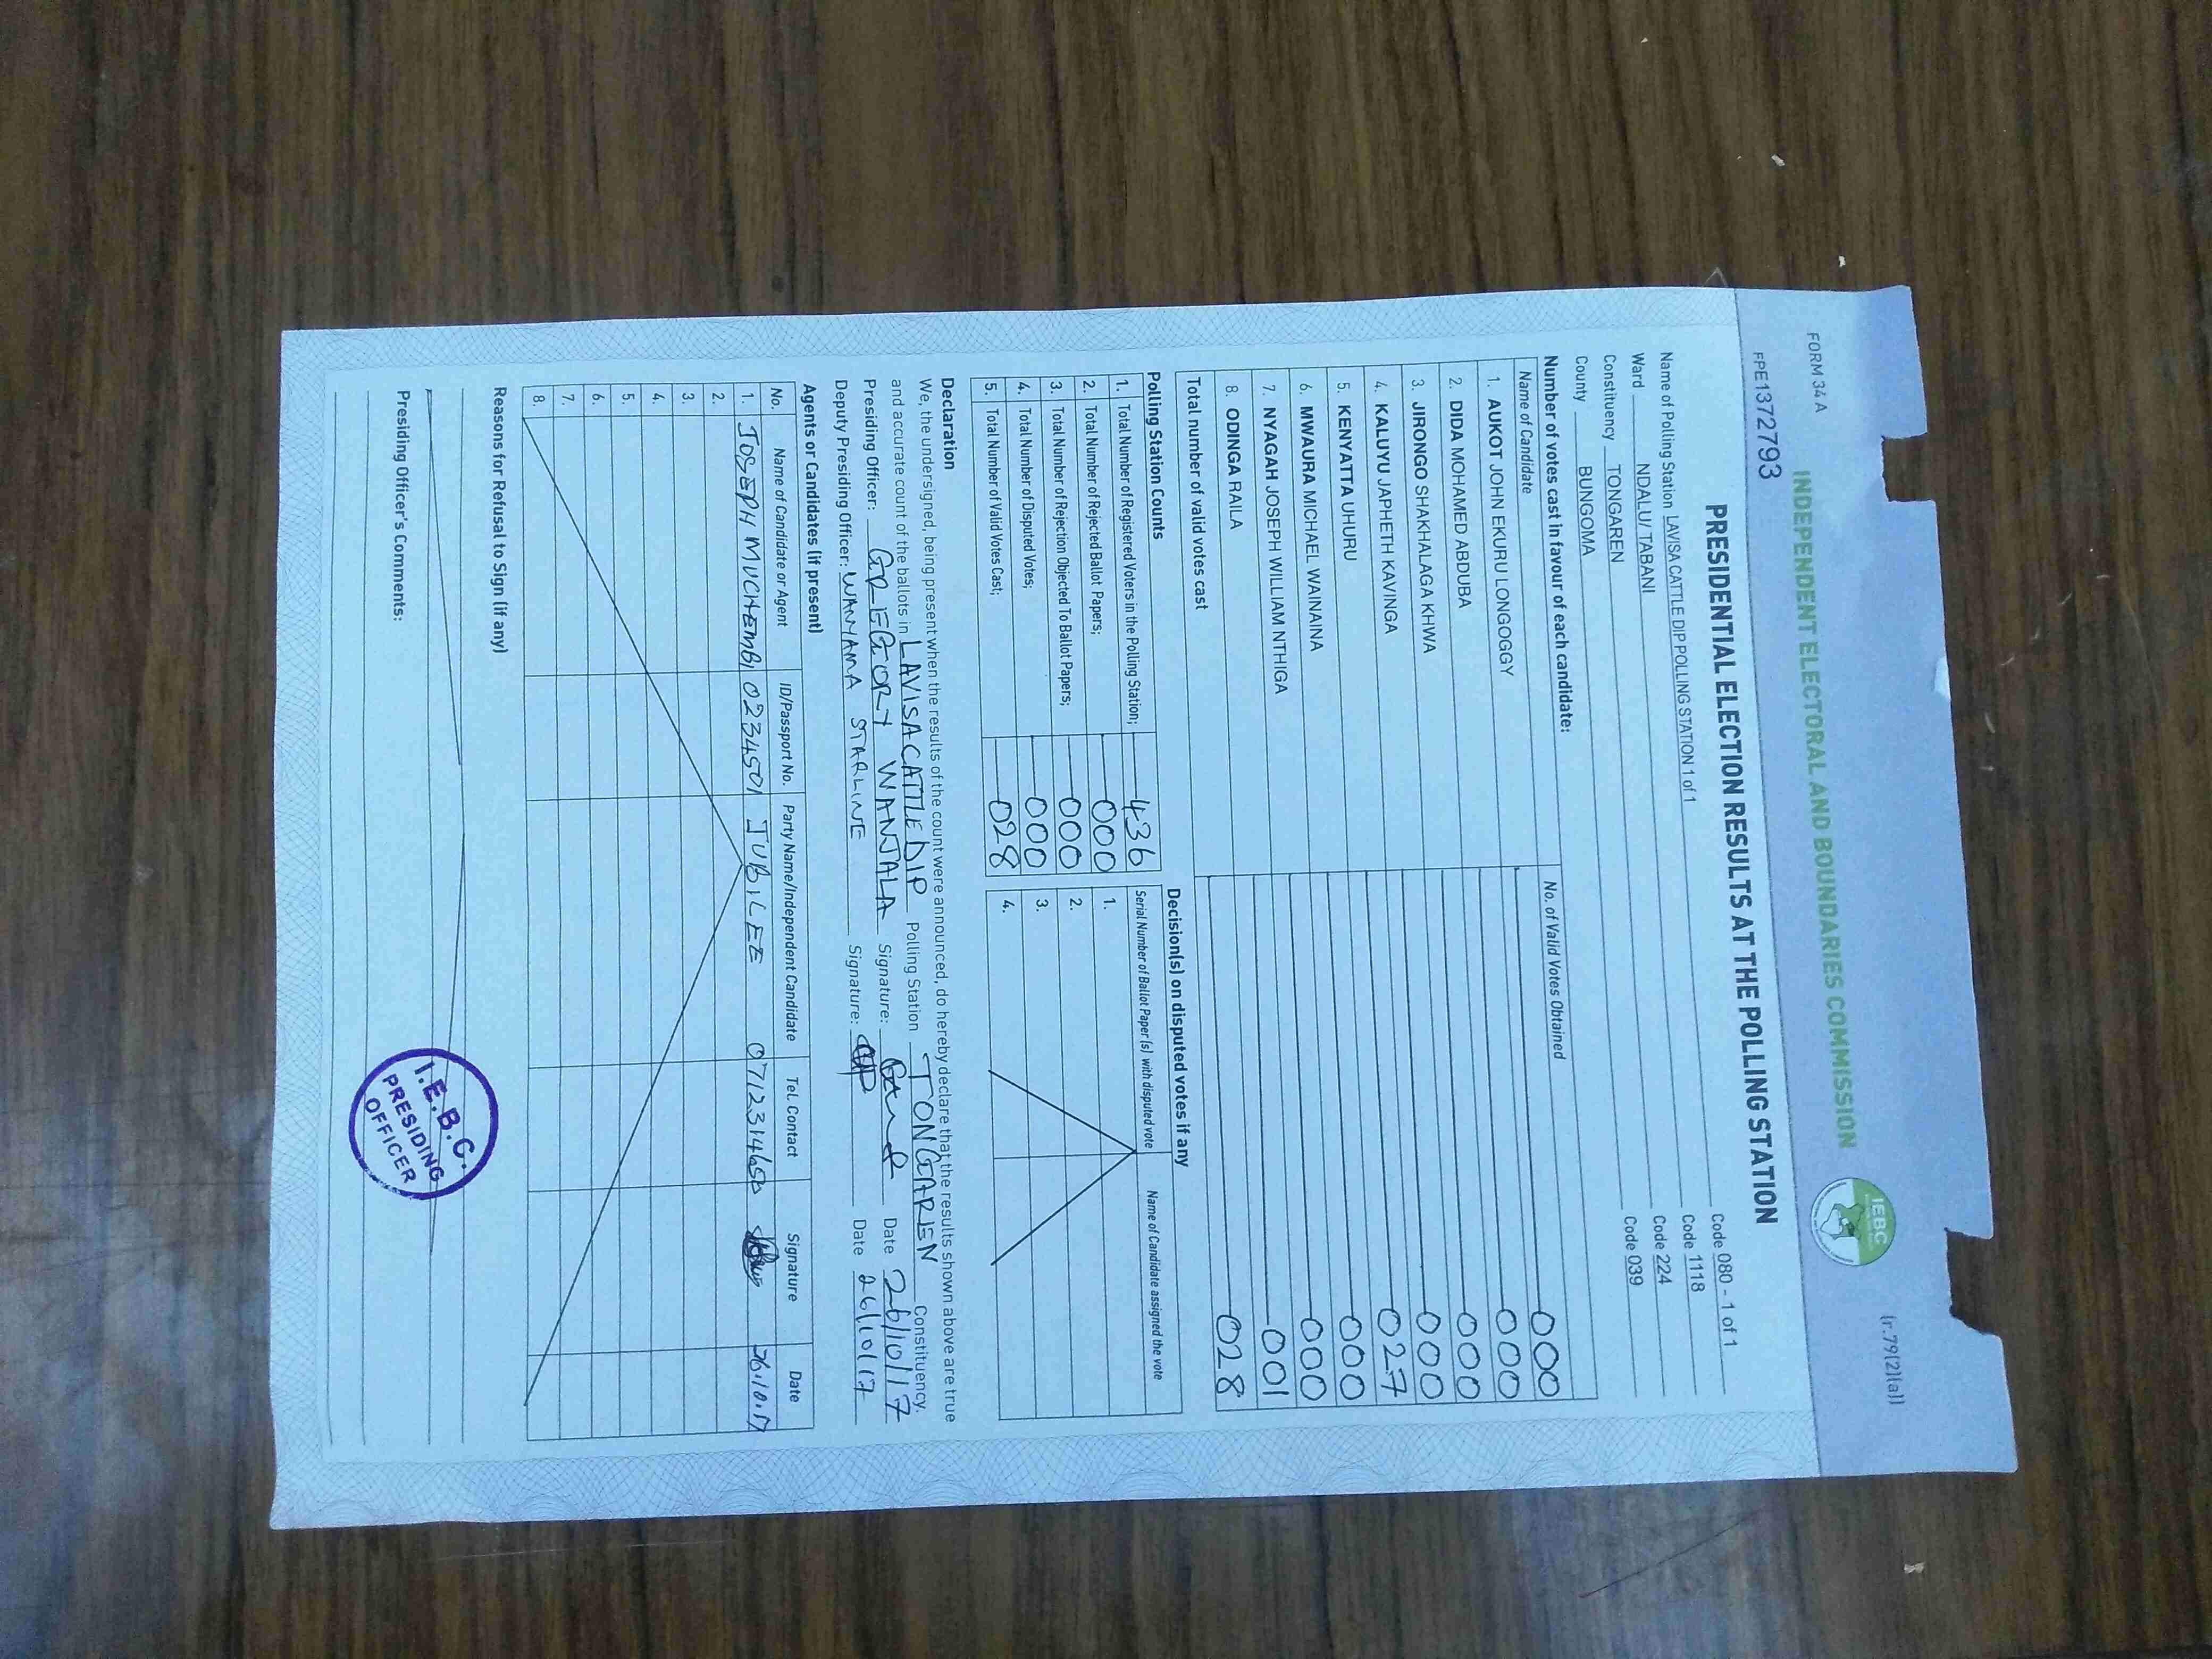 FORM 34 A
(r.79(2)(a))
INDEPENDENT ELECTORAL AND BOUNDARIES COMMISSION
IEBC
FPE1372793
PRESIDENTIAL ELECTION RESULTS AT THE POLLING STATION
Name of Polling Station LAVISA CATTLE DIP POLLING STATION 1 of 1 Code 080 - 1 of 1
Ward NDALU/ TABANI Code 1118
Constituency TONGAREN Code 224
County BUNGOMA Code 039
Number of votes cast in favour of each candidate:
Name of Candidate No. of Valid Votes Obtained
1. AUKOT JOHN EKURU LONGOGGY 000
2. DIDA MOHAMED ABDUBA 000
3. JIRONGO SHAKHALAGA KHWA 000
4. KALUYU JAPHETH KAVINGA 000
5. KENYATTA UHURU 027
6. MWAURA MICHAEL WAINAINA 000
7. NYAGAH JOSEPH WILLIAM NTHIGA 000
8. ODINGA RAILA 001
Total number of valid votes cast 028
Polling Station Counts
1. Total Number of Registered Voters in the Polling Station; 436
2. Total Number of Rejected Ballot Papers; 000
3. Total Number of Rejection Objected To Ballot Papers; 000
4. Total Number of Disputed Votes; 000
5. Total Number of Valid Votes Cast; 028
Decision(s) on disputed votes if any
Serial Number of Ballot Paper (s) with disputed vote Name of Candidate assigned the vote
1.
2.
3.
4.
Declaration
We, the undersigned, being present when the results of the count were announced, do hereby declare that the results shown above are true
and accurate count of the ballots in LAVISA CATTLE DIP Polling Station TONGAREN Constituency.
Presiding Officer: GREGORY WANJALA Signature: Date 26/10/17
Deputy Presiding Officer: WANYAMA STARLINE Signature: Date 26/10/17
Agents or Candidates (if present)
No. Name of Candidate or Agent ID/Passport No. Party Name/Independent Candidate Tel. Contact Signature Date
1. JOSEPH MUCHEMBI 0234501 JUBILEE 0712314650 26.10.17
2.
3.
4.
5.
6.
7.
8.
Reasons for Refusal to Sign (if any)
Presiding Officer's Comments:
I.E.B.C.
PRESIDING
OFFICER